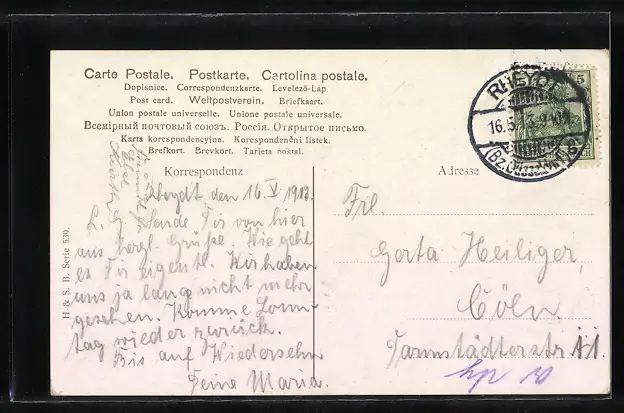 Carte Postale. Postkarte. Cartolina postale.
Dopisnice. Correspondenzkarte. Levelező-Lap.
Post card. Weltpostverein. Briefkaart.
Union postale universelle. Unione postale universale.
Всемірный почтовый союзъ. Россія. Открытое письмо.
Karta korespondencyjna. Korespondenční listek.
Brefkort. Brevkort. Tarjeta postal.
Korrespondenz
Adresse
RHEYDT
16.5.
(BZ. Düsseldorf)
5
H & S. B. Serie 539.
Rheydt den 16 V 1913.
L. Sende Dir von hier
aus herzl. Grüße. Wie geht
es Dir eigentl. Wir haben
uns ja lange nicht mehr
gesehen. Komme Sonn-
tag wieder zurück.
Bis auf Wiedersehn
Deine Maria.
Frl.
Gerta Heiliger,
Cöln
Darmstädterstr 11.